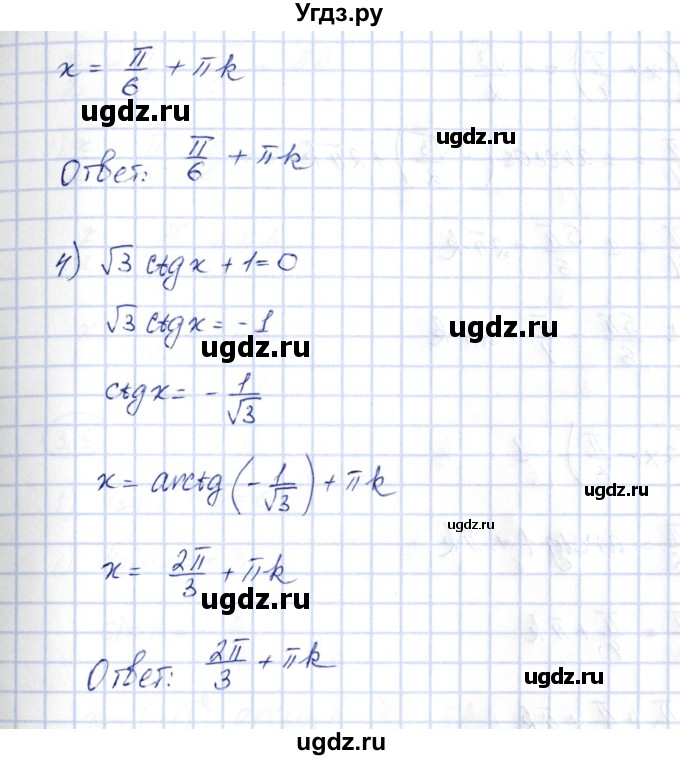 Угдз.ру
x = π/6 + πk
ugdz.ru
Ответ: π/6 + πk
ugdz.ru
4) √3 ctgx + 1 = 0
√3 ctgx = -1
ugdz.ru
ugdz.ru
ctgx = - 1/√3
x = arctg(- 1/√3) + πk
ugdz.ru
ugdz.ru
x = 2π/3 + πk
ugdz.ru
Ответ: 2π/3 + πk
ugdz.ru
ugdz.ru